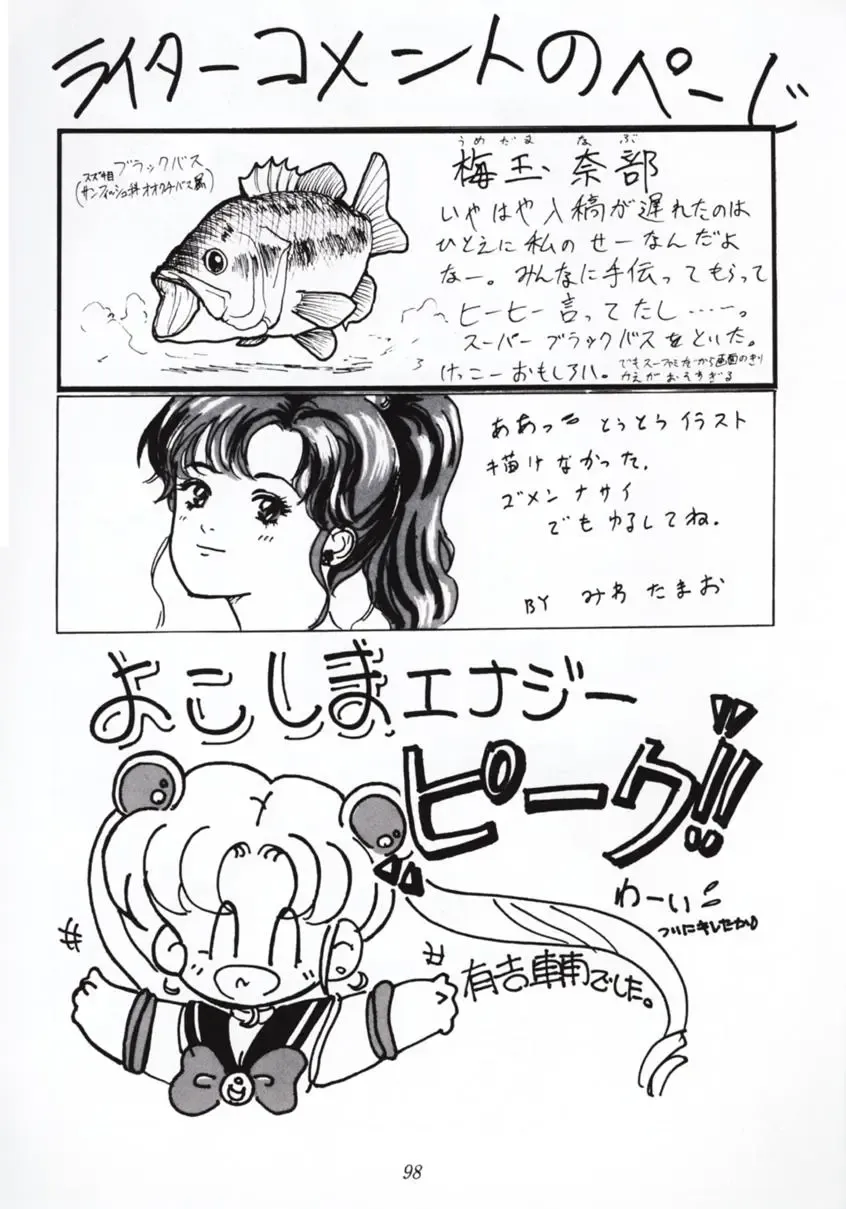 ライターコメントのページ
ブラックバス
スズキ目
(サンフィッシュ科オオクチバス属)
うめだま なぶ
梅玉 奈部
いやはや入稿が遅れたのは
ひとえに私のせーなんだよ
なー。みんなに手伝ってもらって
ヒーヒー言ってたし……。
スーパーブラックバスをといた。
けっこーおもしろい。
でもスーファミだから画面のきり
かえがおそすぎる
ああっ とうとうイラスト
描けなかった。
ゴメンナサイ
でもゆるしてね。
BY みわたまお
よこしまエナジー
ピーク!!
わーい
ついにキレたか
有吉でした。
98